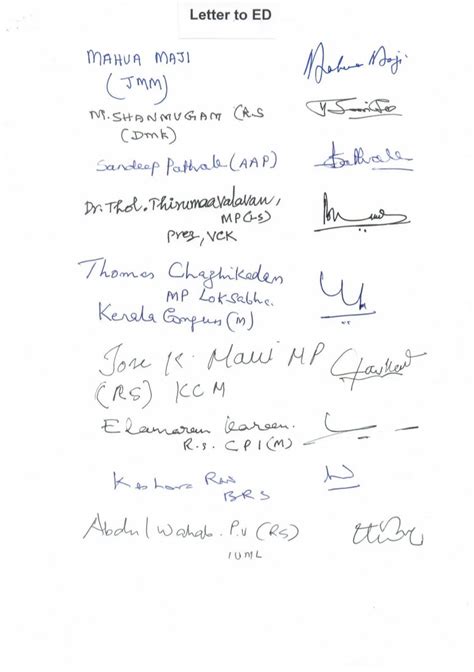 Letter to ED
MAHUA MAJI
(JMM)
M. SHANMUGAM (RS
(DMK)
Sandeep Pathak (AAP)
Dr. Thol. Thirumaavalavan,
MP(LS)
Prez, VCK
Thomas Chazhikadan
MP Loksabha.
Kerala Congress (M)
Jose K. Mani MP
(RS) KCM
Elamaram Kareem.
R.S. CPI(M)
Keshava Rao
BRS
Abdul Wahab. P.V (RS)
IUML